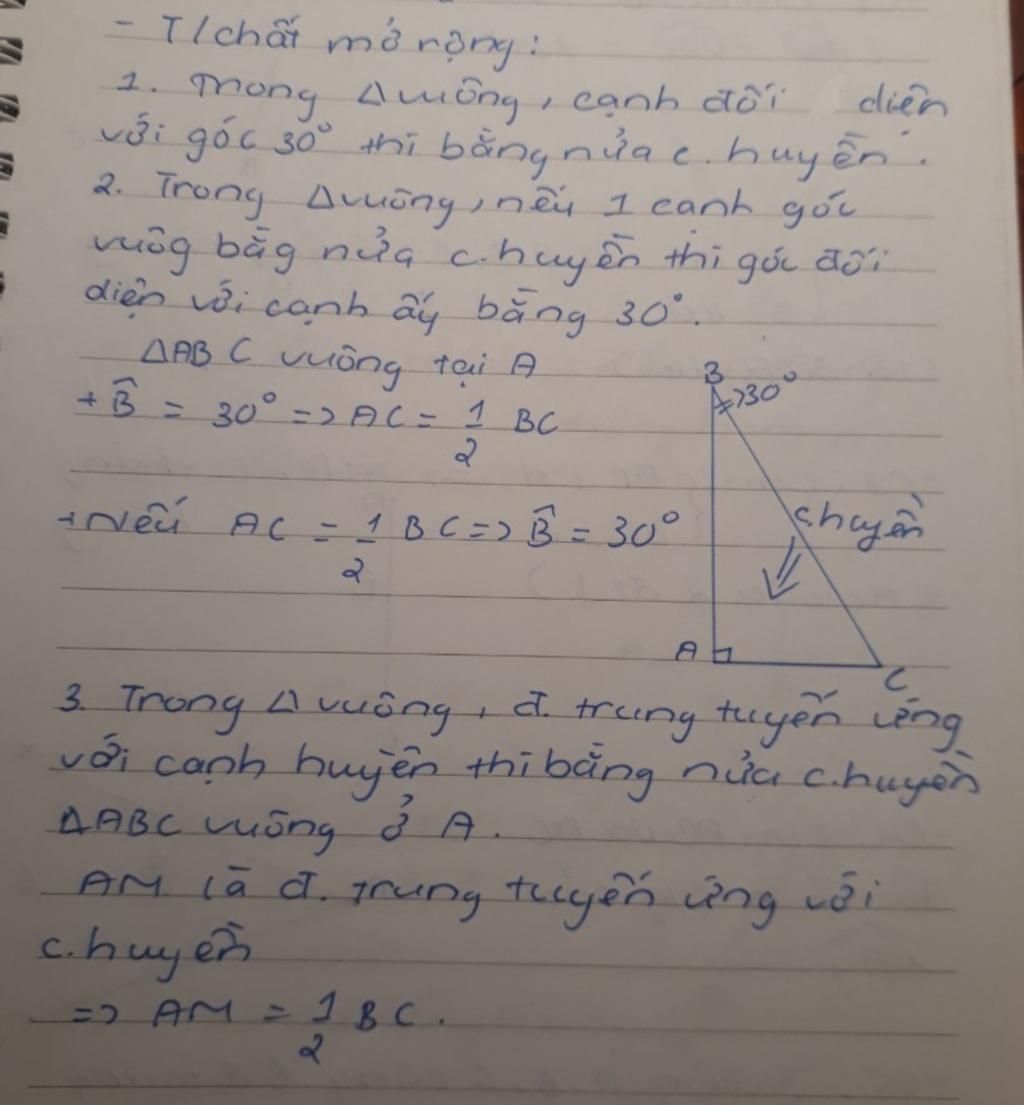 - T/chất mở rộng:
1. Trong Δ vuông, cạnh đối diện
với góc 30° thì bằng nửa c.huyền.
2. Trong Δ vuông, nếu 1 cạnh góc
vuôg bằg nửa c.huyền thì góc đối
diện với cạnh ấy bằng 30°.
ΔABC vuông tại A
+ B̂ = 30° => AC = 1/2 BC
+ Nếu AC = 1/2 BC => B̂ = 30°
B
30°
c.huyền
A
C
3. Trong Δ vuông, đ. trung tuyến ứng
với cạnh huyền thì bằng nửa c.huyền
ΔABC vuông ở A.
AM là đ. trung tuyến ứng với
c.huyền
=> AM = 1/2 BC.